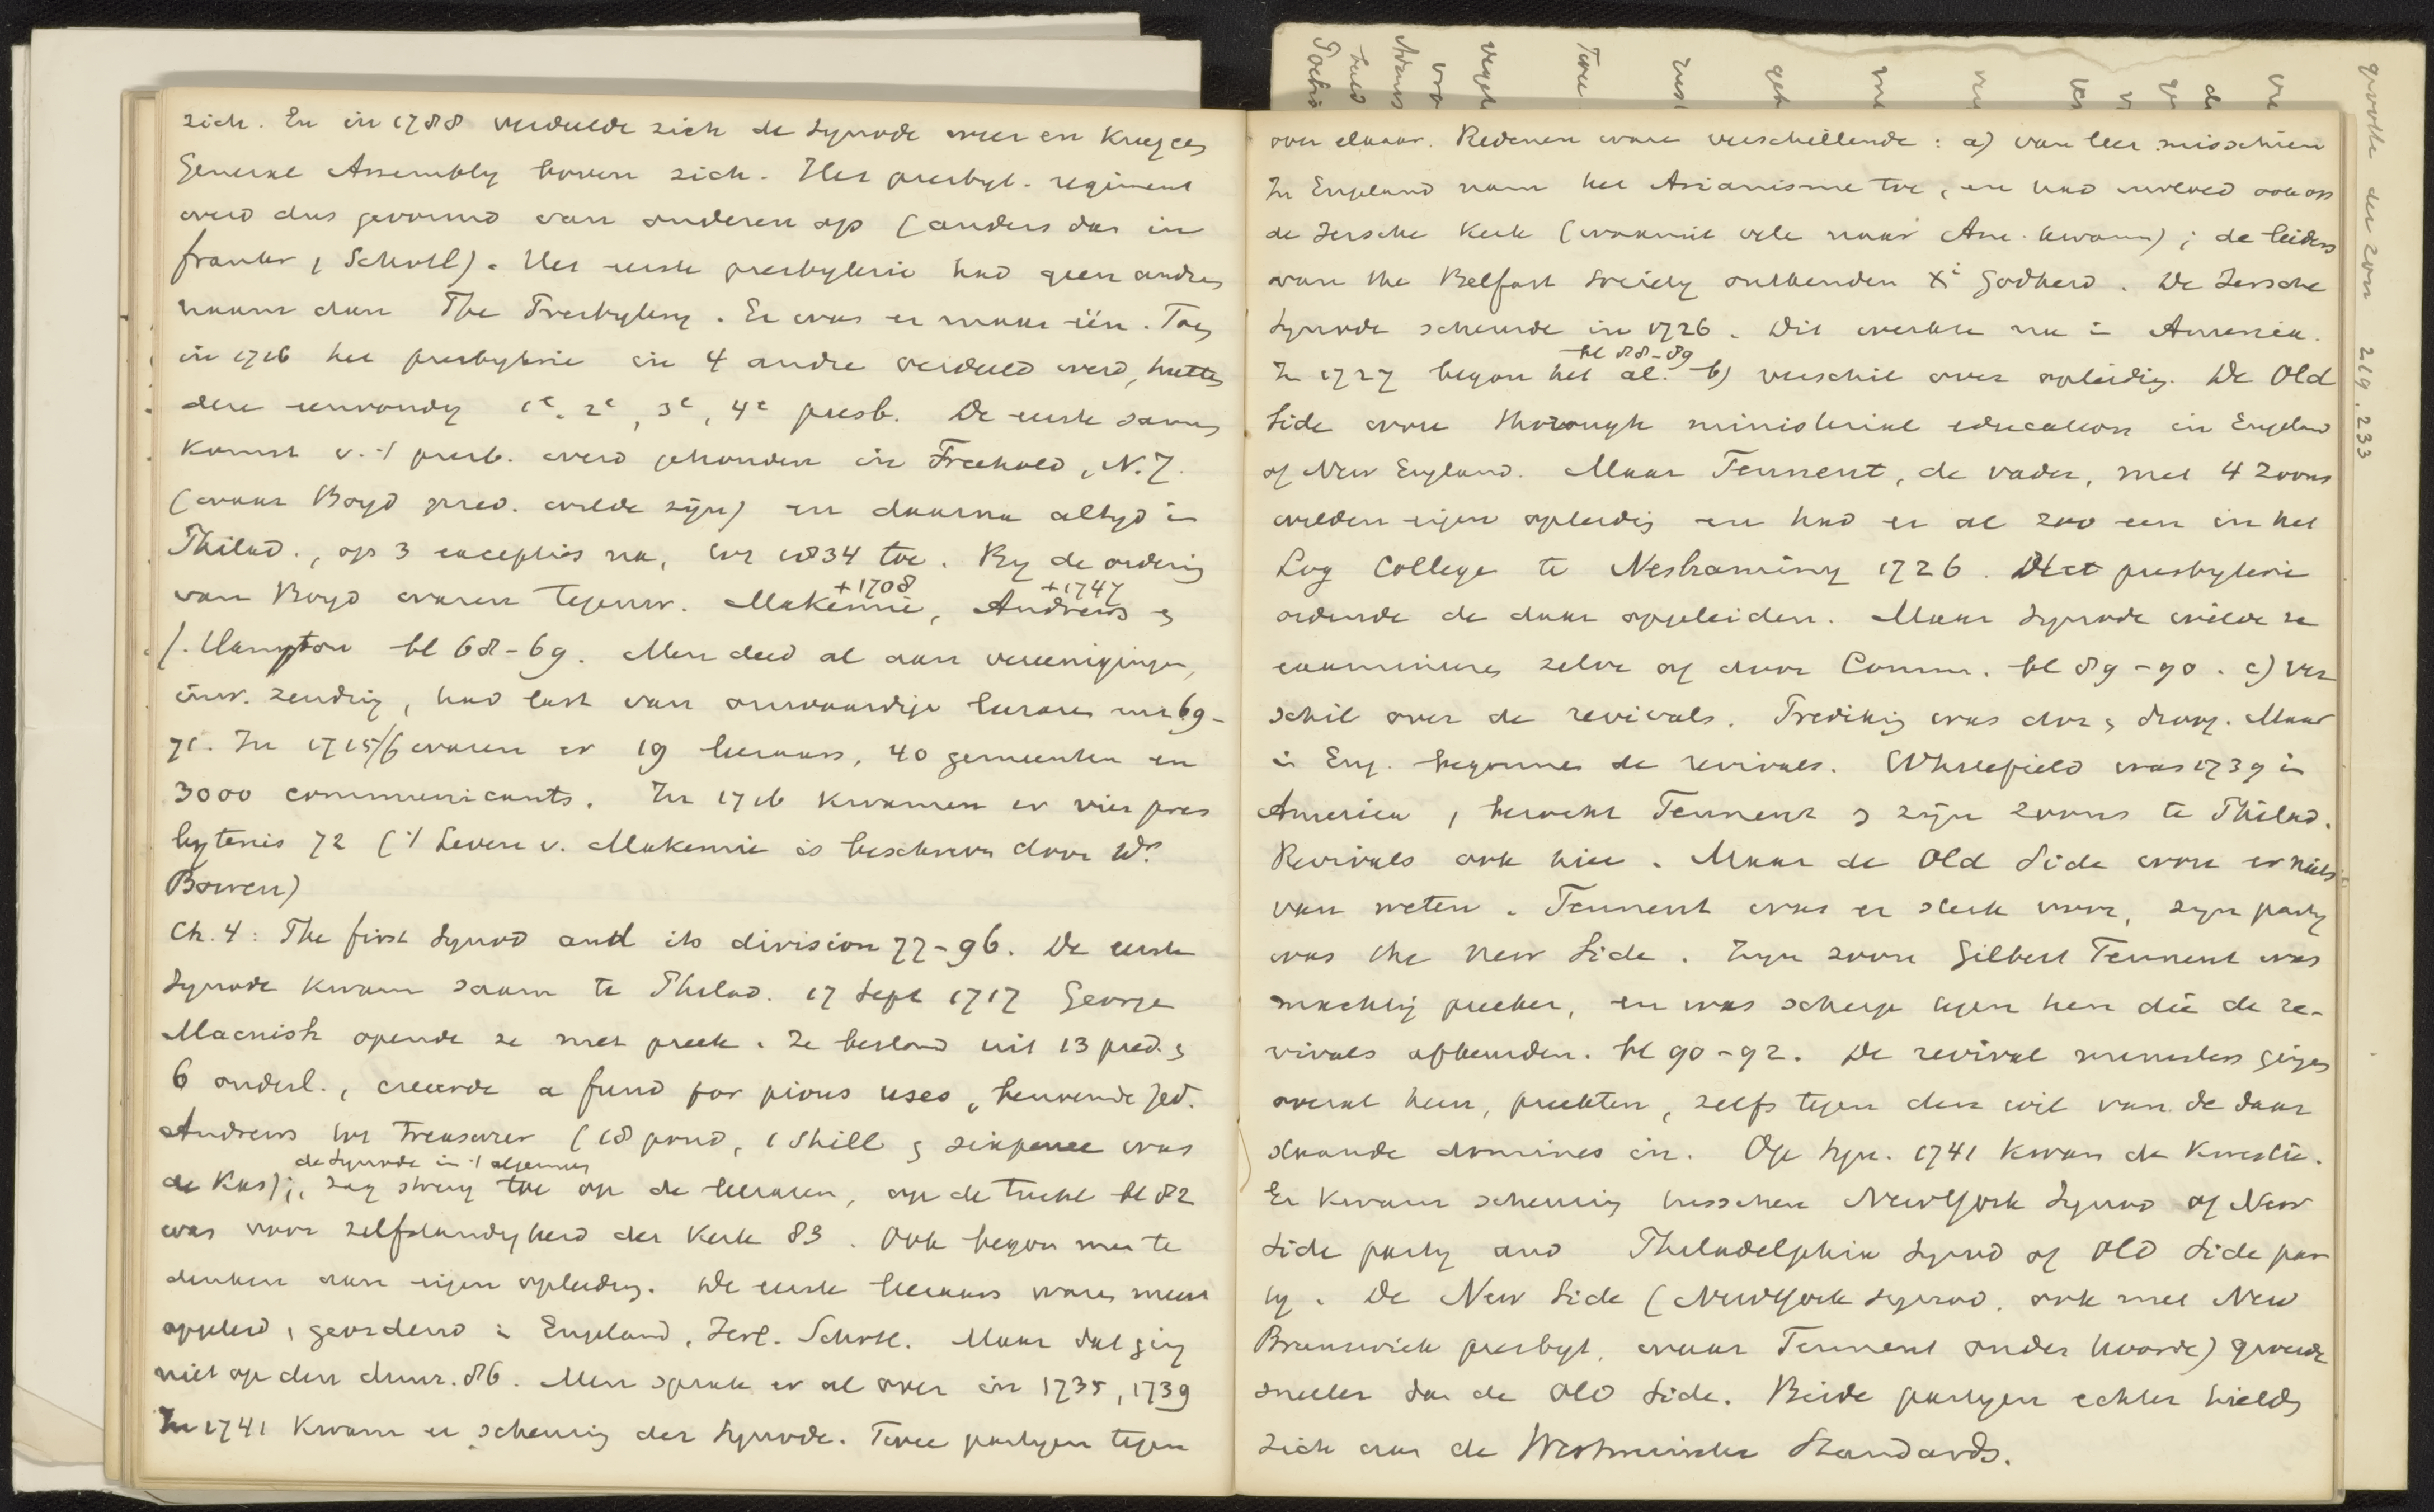 zich. En in 1788 verdeelde zich de synode weer en kreeg een
General Assembly boven zich. Het presbyt. regiment
werd dus gevormd van onderen op (anders dan in
Frankr, Schotl). Het eerste presbyterie had geen andren
naam dan The Presbytery. Er was er maar één. Toen
in 1716 het presbyterie in 4 andre verdeeld werd, heetten
deze eenvoudig 1e, 2e, 3e, 4e presb. De eerste samen
komst v. 't presb. werd gehouden in Freehold, N.J.
(waar Boyd pred. wilde zijn) en daarna altyd in
Philad., op 3 excepties na, tot 1834 toe. By de ordening
+1708 +1747
van Boyd waren tegenw. Makemie, Andrews en
J. Hampton bl 68-69. Men deed al aan vereenigingen,
inw. zending, had last van onwaardige leeraren enz 69-
71. In 1715/6 waren er 19 leeraars, 40 gemeenten en
3000 communicants. In 1716 kwamen er vier pres
byteries 72 ('t Leven v. Makemie is beschreven door Ws
Bowen)
Ch. 4: The first Synod and its division 77-96. De eerste
Synode kwam saam te Philad. 17 Sept 1717 George
Macnish opende ze met preek. Ze bestond uit 13 pred. en
6 ouderl., creeerde a fund for pious uses, benoemde Jed.
Andrews tot Treasurer (18 pond, 1 shill en sixpence was
de Synode in 't algemeen
de kas); zag streng toe op de leeraren, op de tucht bl 82
was voor zelfstandigheid der kerk 83. Ook begon men te
denken aan eigen opleiding. De eerste leeraars waren meest
opgeleid, geordend in Engeland, Ierl. Schotl. Maar dat ging
niet op den duur. 86. Men sprak er al over in 1735, 1739
In 1741 kwam er scheuring der Synode. Twee partyen tegen
over elkaar. Redenen waren verschillende: a) van leer misschien
In Engeland nam het Arianisme toe, en had invloed ook op
de Iersche Kerk (waaruit vele naar Am. kwamen); de leiders
van the Belfast Society ontkenden Xi Godheid. De Iersche
Synode scheurde in 1726. Dit werkte na in Amerika.
bl 88-89
In 1727 begon het al. b) verschil over opleiding. De Old
Side wou thorough ministerial education in Engeland
of New England. Maar Tennent, de vader, met 4 zoons
wilden eigen opleiding en had er al zoo een in het
Log College te Neshaminy 1726. Het presbyterie
ordende de daar opgeleiden. Maar Synode wilde ze
examineeren zelve of door Comm. bl 89-90. c) Ver
schil over de revivals. Prediking was dor en droog. Maar
in Eng. begonnen de revivals. Whitefield was 1739 in
America, bezocht Tennent en zijn zoons te Philad.
Revivals ook hier. Maar de Old Side wou er niets
van weten. Tennent was er sterk voor, zyn party
was the New Side. Zyn zoon Gilbert Tennent was
machtig preeker, en was scherp tegen hen die de re-
vivals afkeurden. bl 90-92. De revival ministers gingen
overal heen, preekten, zelfs tegen den wil van de daar
staande dominees in. Op Syn. 1741 kwam de kwestie.
Er kwam scheuring tusschen New York Synod of New
Side party and Philadelphia Synod of Old Side par
ty. De New Side (New York Synod, ook met New
Brunswick presbyt. waar Tennent onder hoorde) groeide
sneller dan de Old Side. Beide partyen echter hielden
zich aan de Westminster Standards.
grootte der zon 219.233